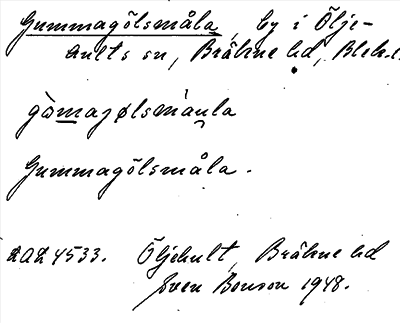 Gummagölsmåla, by i Ölje-
hults sn, Bräkne hd, Blek.l.
gòmaȷølsmàula
Gummagölsmåla.
LAL 4533. Öljehult, Bräkne hd
Sven Benson 1948.